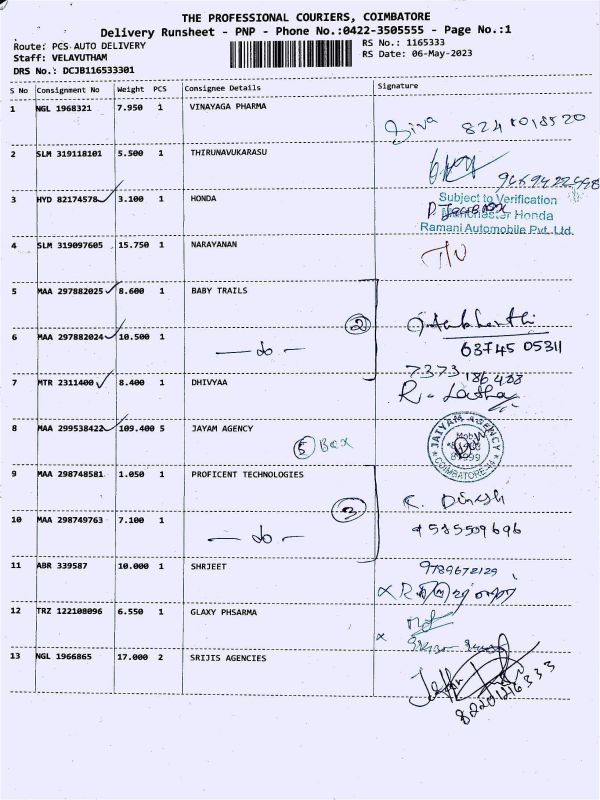 THE PROFESSIONAL COURIERS, COIMBATORE
Delivery Runsheet - PNP - Phone No.:0422-3505555 - Page No.:1
Route: PCS AUTO DELIVERY
RS No.: 1165333
Staff: VELAYUTHAM
RS Date: 06-May-2023
DRS No.: DCJB116533301
S No Consignment No Weight PCS Consignee Details Signature
1 NGL 1968321 7.950 1 VINAYAGA PHARMA
Siva
2 SLM 319118101 5.500 1 THIRUNAVUKARASU
3 HYD 82174578 3.100 1 HONDA
Subject to Verification
Manchester Honda
Ramani Automobile Pvt. Ltd.
4 SLM 319097605 15.750 1 NARAYANAN
5 MAA 297882025 8.600 1 BABY TRAILS
2
6 MAA 297882024 10.500 1 do
63745 05311
7373 186 408
7 MTR 2311400 8.400 1 DHIVYAA
R. Latha
8 MAA 299538422 109.400 5 JAYAM AGENCY
5 Box
JAIYAM AGENCY
COIMBATORE
9 MAA 298748581 1.050 1 PROFICENT TECHNOLOGIES
3
R. Dinesh
10 MAA 298749763 7.100 1 do
11 ABR 339587 10.000 1 SHRJEET
9789672129
12 TRZ 122108096 6.550 1 GLAXY PHSARMA
13 NGL 1966865 17.000 2 SRIJIS AGENCIES
8220126333